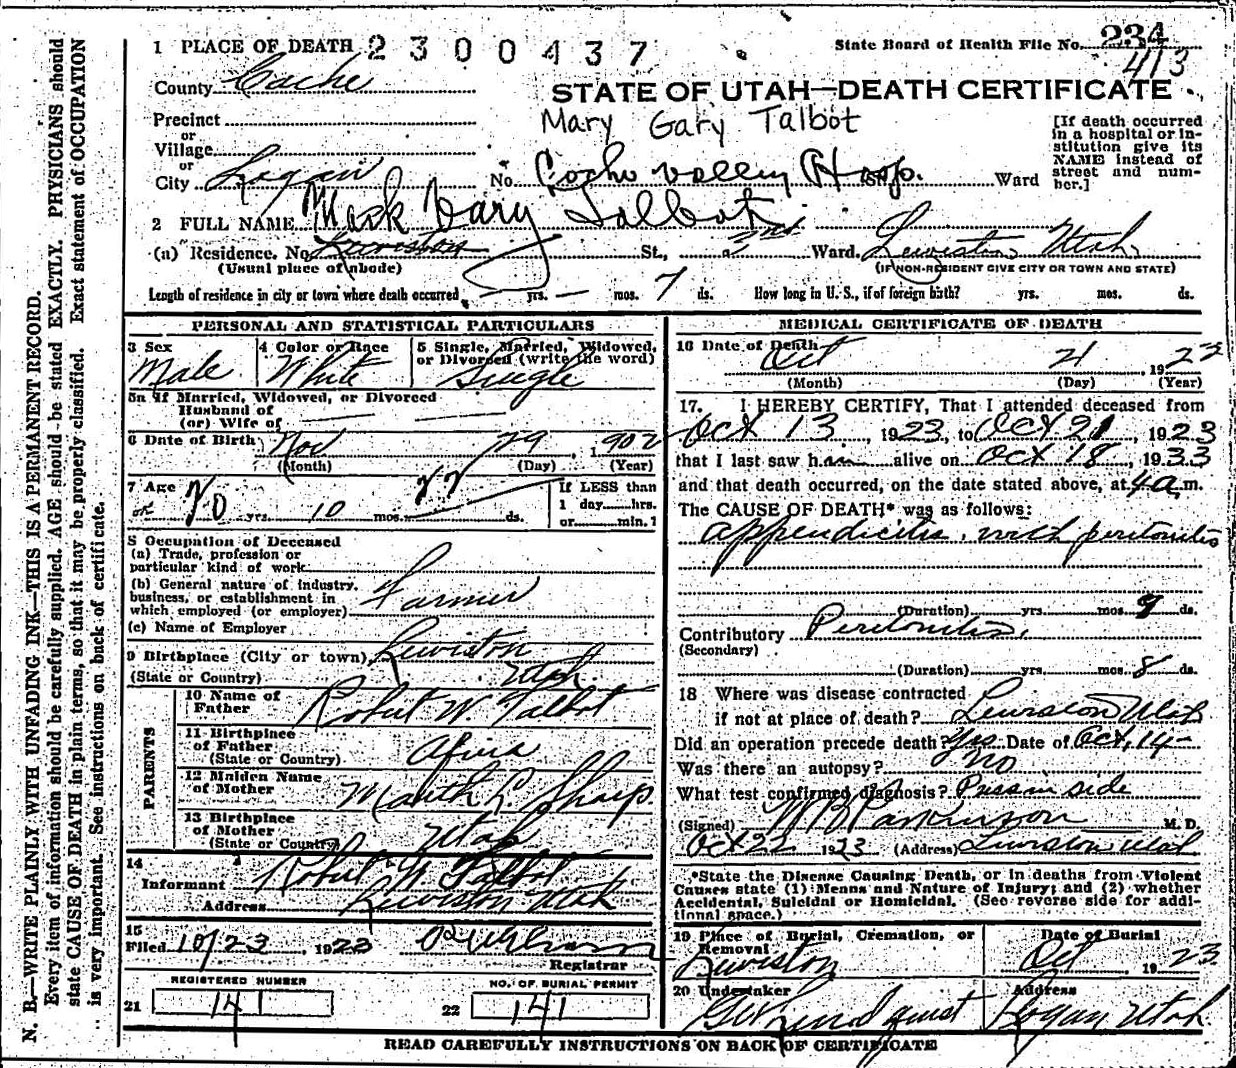 N. B.—WRITE PLAINLY WITH UNFADING INK—THIS IS A PERMANENT RECORD.
Every item of information should be carefully supplied. AGE should be stated EXACTLY. PHYSICIANS should
state CAUSE OF DEATH in plain terms, so that it may be properly classified. Exact statement of OCCUPATION
is very important. See instructions on back of certificate.
1 PLACE OF DEATH 2300437
State Board of Health File No. 234
413
County Cache
STATE OF UTAH—DEATH CERTIFICATE
Precinct
Mary Gary Talbot
or
Village
or
City Logan No. Cache Valley Hosp. St. Ward
[If death occurred
in a hospital or in-
stitution give its
NAME instead of
street and num-
ber.]
2 FULL NAME Mark Gary Talbot
(a) Residence. No. Lewiston St., 2nd Ward. Lewiston Utah
(Usual place of abode) (IF NON-RESIDENT GIVE CITY OR TOWN AND STATE)
Length of residence in city or town where death occurred — yrs. — mos. 7 ds. How long in U. S., if of foreign birth? yrs. mos. ds.
PERSONAL AND STATISTICAL PARTICULARS
3 Sex 4 Color or Race 5 Single, Married, Widowed,
or Divorced (write the word)
Male White Single
5a If Married, Widowed, or Divorced
Husband of
(or) Wife of
6 Date of Birth Nov 29, 1902
(Month) (Day) (Year)
7 Age If LESS than
20 yrs. 10 mos. 22 ds. 1 day hrs.
or min. ?
8 Occupation of Deceased
(a) Trade, profession or
particular kind of work
(b) General nature of industry,
business, or establishment in
which employed (or employer) Farmer
(c) Name of Employer
9 Birthplace (City or town) Lewiston
(State or Country) Utah
PARENTS
10 Name of
Father Robert W. Talbot
11 Birthplace
of Father
(State or Country) Africa
12 Maiden Name
of Mother L. Sharp
13 Birthplace
of Mother
(State or Country) Utah
14
Informant Robert W Talbot
Address Lewiston Utah
15
Filed 10/23 1923
Registrar
REGISTERED NUMBER NO. OF BURIAL PERMIT
21 141 22 141
MEDICAL CERTIFICATE OF DEATH
16 Date of Death Oct 21 1923
(Month) (Day) (Year)
17. I HEREBY CERTIFY, That I attended deceased from
Oct 13, 1923, to Oct 21, 1923
that I last saw him alive on Oct 18, 1933
and that death occurred, on the date stated above, at 4 a.m.
The CAUSE OF DEATH* was as follows:
appendicitis, with peritonitis
(Duration) yrs. mos. 9 ds.
Contributory Peritonitis.
(Secondary)
(Duration) yrs. mos. 8 ds.
18 Where was disease contracted
if not at place of death? Lewiston Utah
Did an operation precede death? Yes Date of Oct, 14
Was there an autopsy? no
What test confirmed diagnosis? Puss in side
(Signed) W B Parkinson M. D.
Oct 22 1923 (Address) Lewiston Utah
*State the Disease Causing Death, or in deaths from Violent
Causes state (1) Means and Nature of Injury; and (2) whether
Accidental, Suicidal or Homicidal. (See reverse side for addi-
tional space.)
19 Place of Burial, Cremation, or Date of Burial
Removal
Lewiston Oct 1923
20 Undertaker Address
Logan, Utah.
READ CAREFULLY INSTRUCTIONS ON BACK OF CERTIFICATE